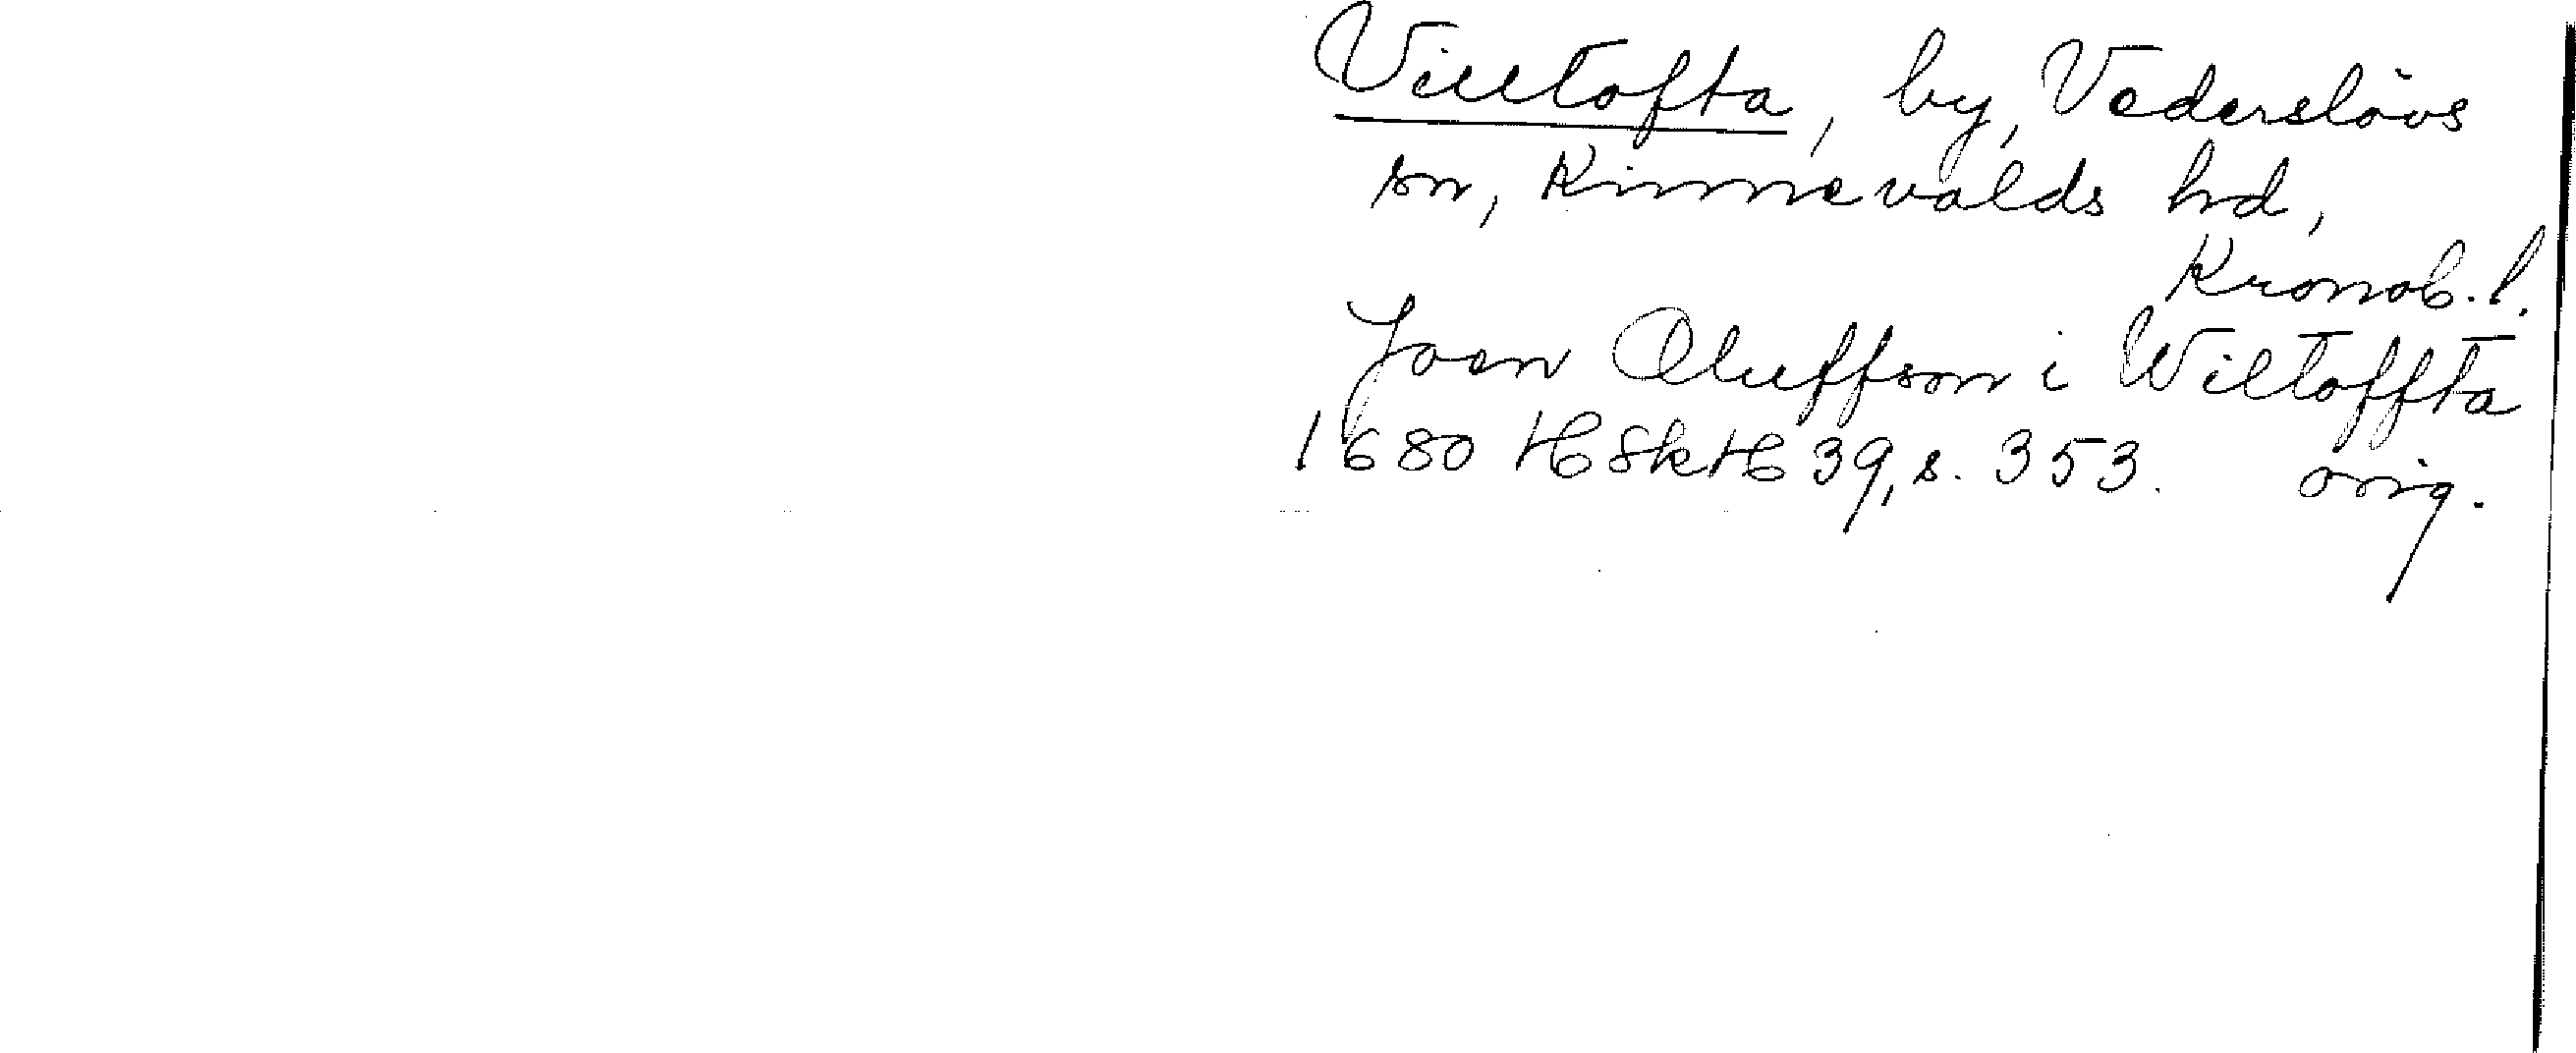 Villtofta, by, Vederslövs
sn, Kinnevalds hd,
Kronob. l.
Joen Oluffson i Wiltoffta
1680 HSkH 39, s. 353. orig.